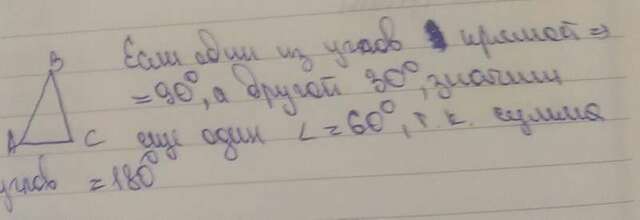 B
Если один из углов прямой ⇒
= 90°, а другой 30°, значит
A C еще один ∠ = 60°, т.к. сумма
углов = 180°